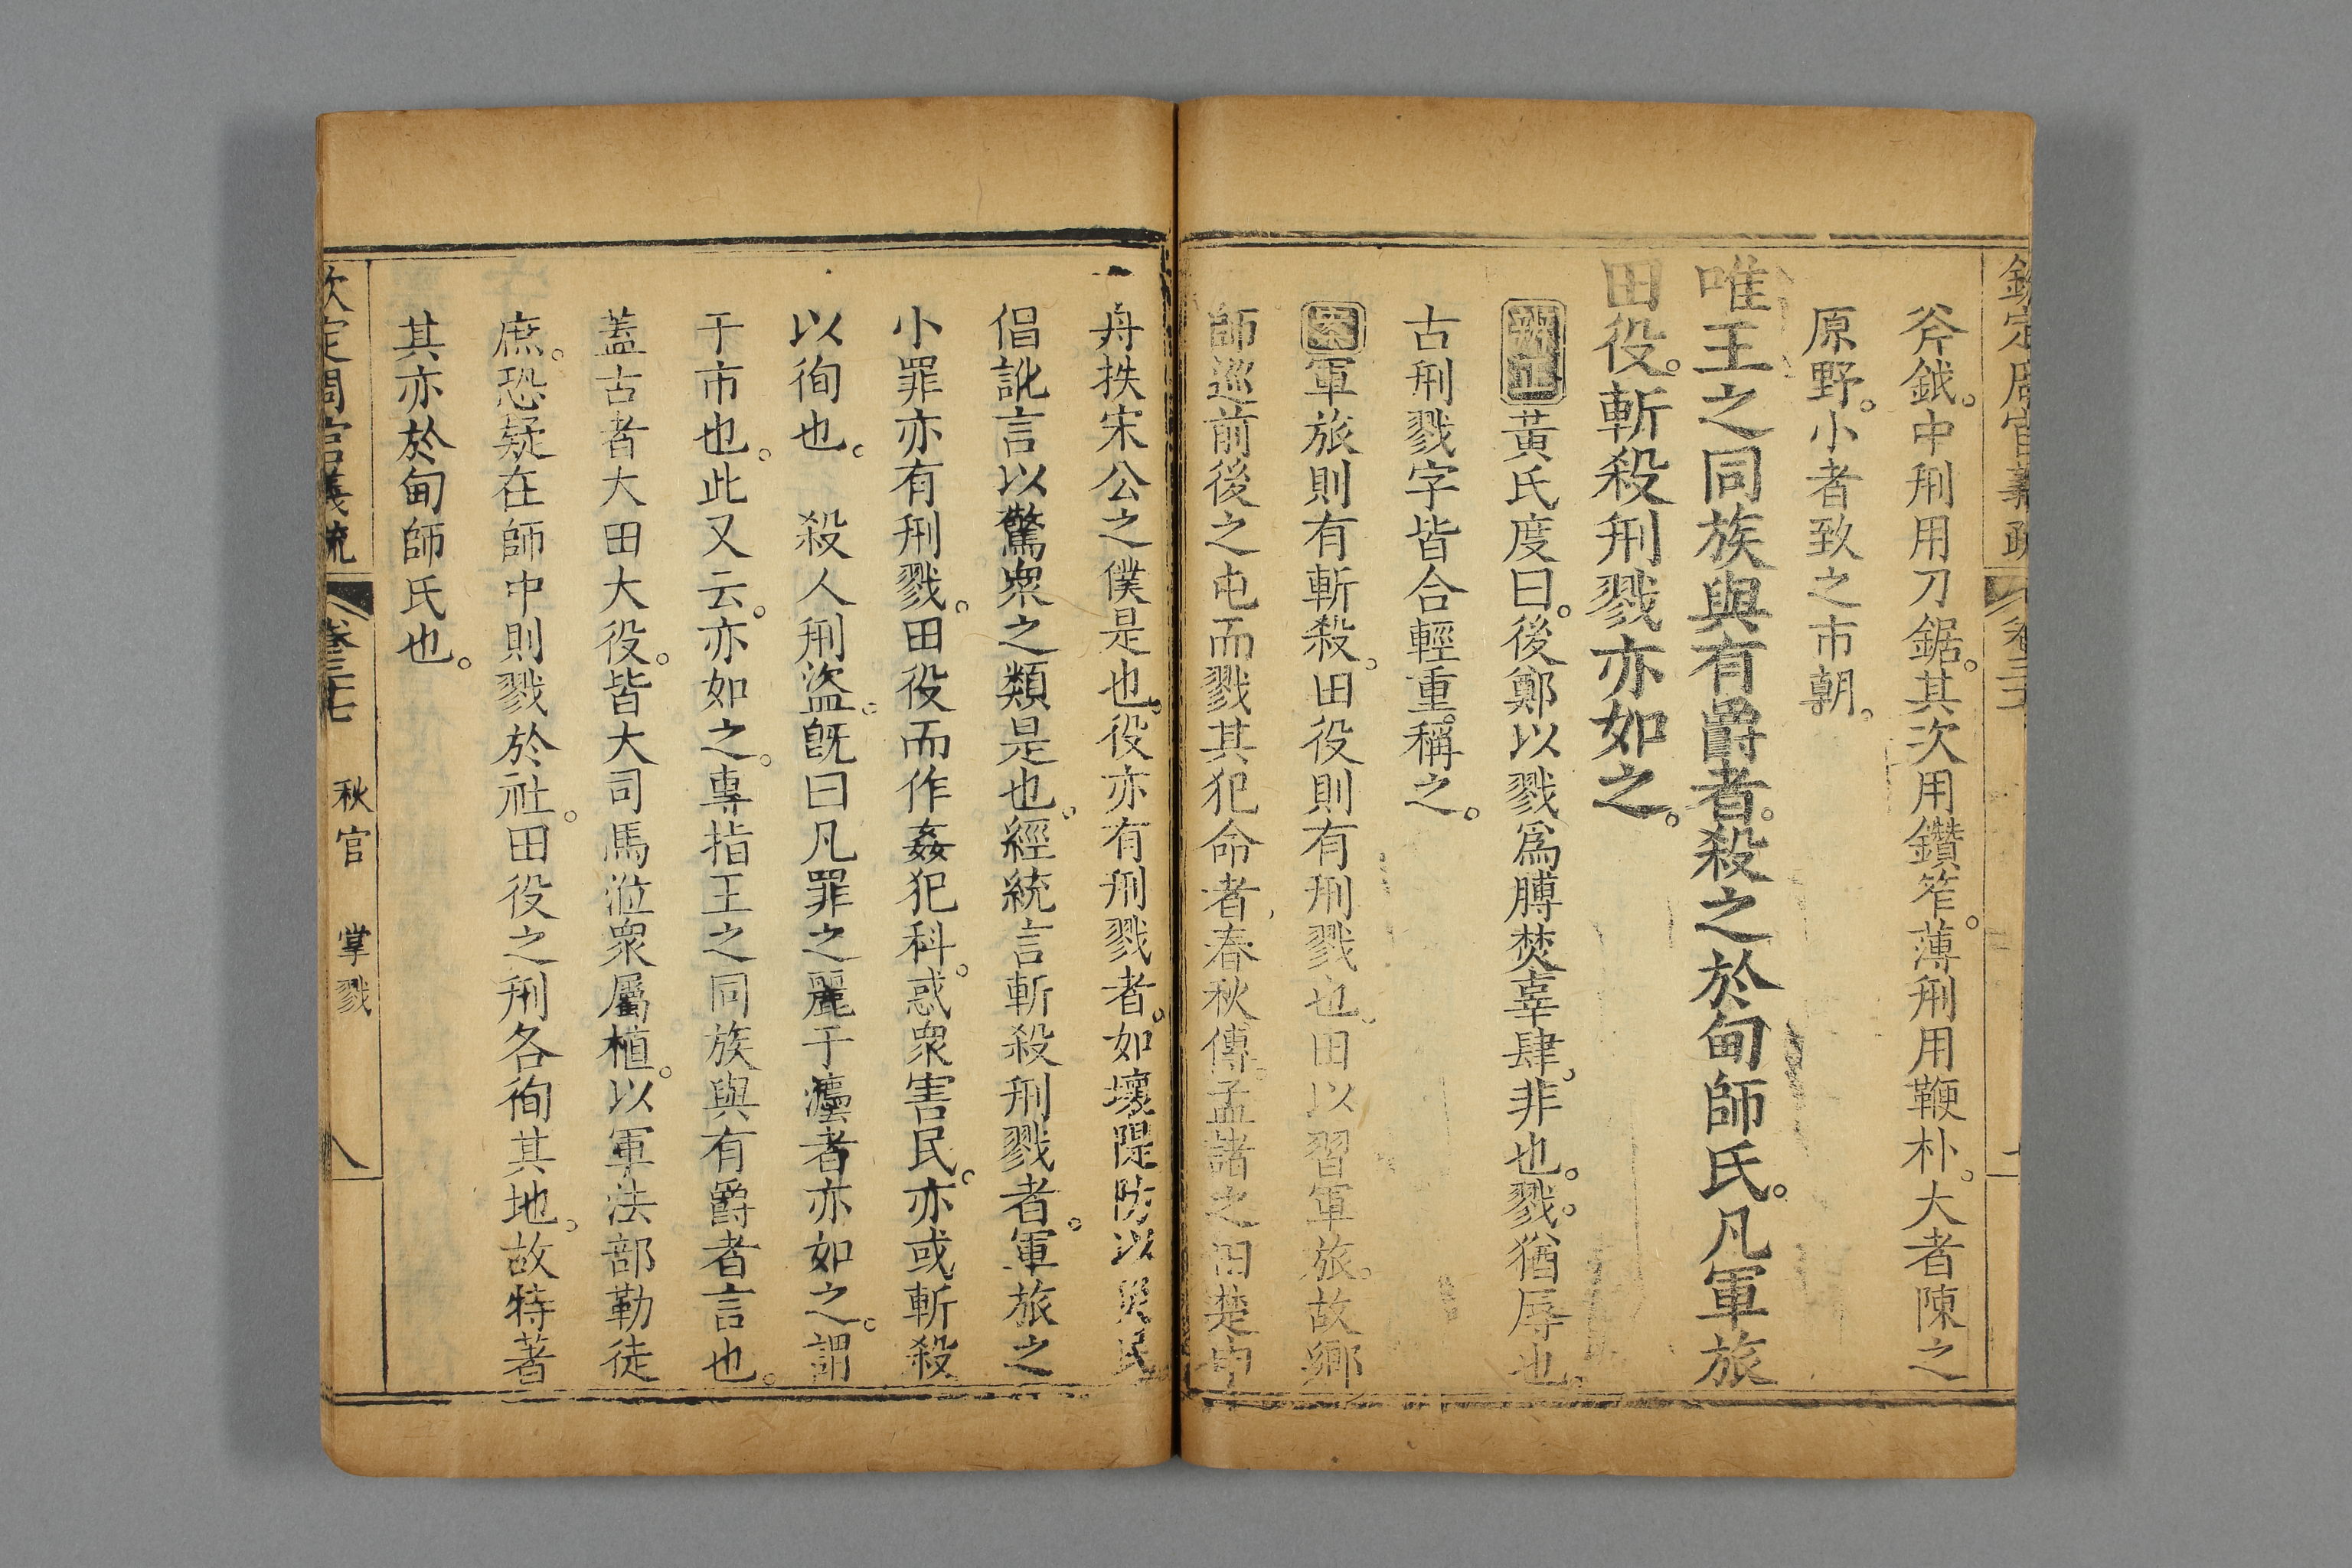 欽定周官義疏 卷三十七
斧鉞。中刑用刀鋸。其次用鑽笮。薄刑用鞭朴。大者陳之
原野。小者致之市朝。
唯王之同族與有爵者。殺之於甸師氏。凡軍旅
田役。斬殺刑戮亦如之。
辨正黃氏度曰。後鄭以戮爲膊焚辜肆。非也。戮。猶辱也。
古刑戮字皆合輕重稱之。
案軍旅則有斬殺。田役則有刑戮也。田以習軍旅。故鄉
師巡前後之屯而戮其犯命者。春秋傳。孟諸之田楚申
舟抶宋公之僕是也。役亦有刑戮者。如壞隄防以災民
倡訛言以驚衆之類是也。經統言斬殺刑戮者。軍旅之
小罪亦有刑戮。田役而作姦犯科。惑衆害民。亦或斬殺
以徇也。 殺人刑盜。旣曰凡罪之麗于灋者亦如之。謂
于市也。此又云。亦如之。專指王之同族與有爵者言也。
蓋古者大田大役。皆大司馬涖衆屬植。以軍法部勒徒
庶。恐疑在師中則戮於社。田役之刑各徇其地。故特著
其亦於甸師氏也。
欽定周官義疏 卷三十七 秋官 掌戮 八